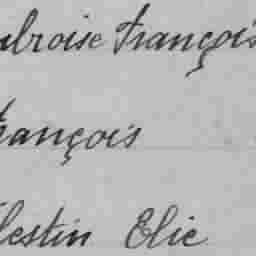 mbroise François
rançois
lestin Elie